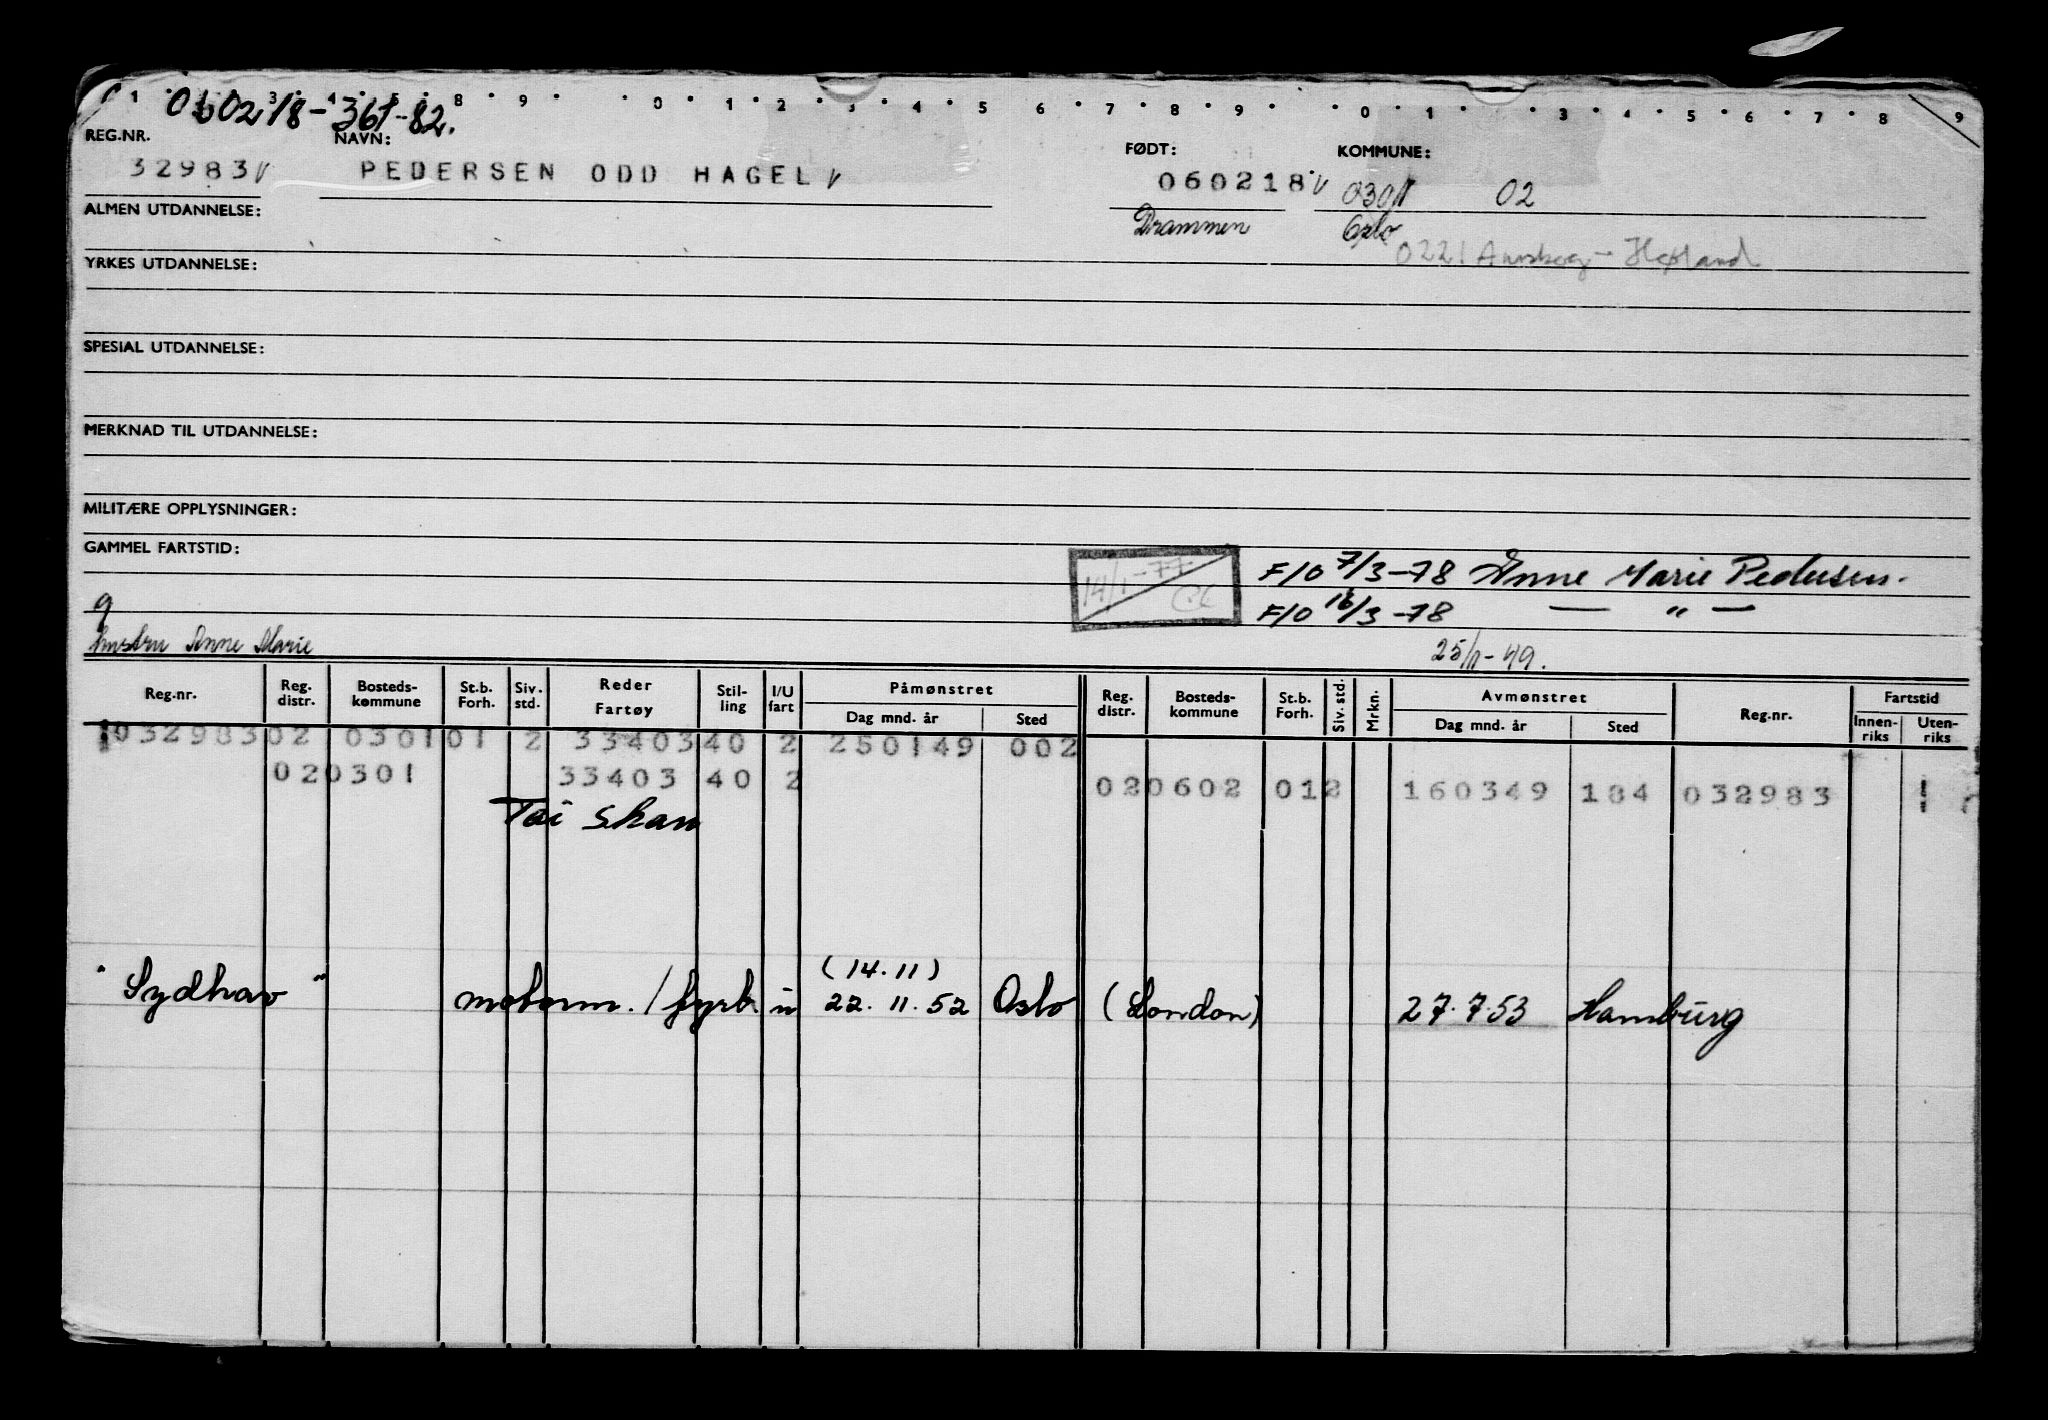 1 3 4 5 8 9 0 1 2 3 4 5 6 7 8 9 0 1 3 4 5 6 7 8 9
060218-361-82.
REG.NR. NAVN: FØDT: KOMMUNE:
32983 PEDERSEN ODD HAGEL 060218 0301 02
ALMEN UTDANNELSE: Drammen Oslo
0221 Aurskog-Høland
YRKES UTDANNELSE:
SPESIAL UTDANNELSE:
MERKNAD TIL UTDANNELSE:
MILITÆRE OPPLYSNINGER:
GAMMEL FARTSTID:
14/1-77 F/0 7/3-78 Anne Marie Pedersen.
9 F/0 16/3-78 — " —
hustru Anne Marie 25/1-49.
Reg.nr. Reg. distr. Bosteds-kommune St.b. Forh. Siv. std. Reder Fartøy Stil-ling I/U fart Påmønstret Dag mnd. år Sted Reg. distr. Bosteds-kommune St.b. Forh. Siv. std. Mrkn. Avmønstret Dag mnd. år Sted Reg.nr. Fartstid Innen-riks Uten-riks
032983 02 0301 01 2 33403 40 2 250149 002
02 0301 33403 40 2 02 0602 01 2 160349 184 032983 1
Tai Shan
(14.11)
"Sydhav" motorm. / fyrb u 22.11.52 Oslo (London) 27.7.53 Hamburg